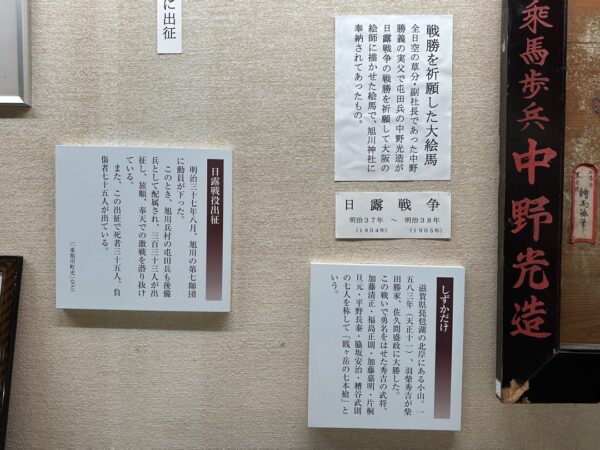 に出征
戦勝を祈願した大絵馬
全日空の草分・副社長であった中野
勝義の実父で屯田兵の中野光造が
日露戦争の戦勝を祈願して大阪の
絵師に描かせた絵馬で、旭川神社に
奉納されてあったもの。
日露戦争
明治37年 ～ 明治38年
(1904年) (1905年)
乘馬歩兵 中野光造
日露戦役出征
明治三十七年八月、旭川の第七師団
に動員が下った。
このとき、旭川兵村の屯田兵も後備
兵として配属され、三百三十三人が出
征し、旅順、奉天での激戦を潜り抜け
ている。
また、この出征で死者三十五人、負
傷者七十五人が出ている。
(「東旭川町史」など)
しずかだけ
滋賀県琵琶湖の北岸にある小山。一
五八三年(天正十一)、羽柴秀吉が柴
田勝家、佐久間盛政に大勝した。
この戦いで勇名をはせた秀吉の武将、
加藤清正・福島正則・加藤嘉明・片桐
旦元・平野長泰・脇坂安治・糟谷武則
の七人を称して「賎ヶ岳の七本槍」と
いう。